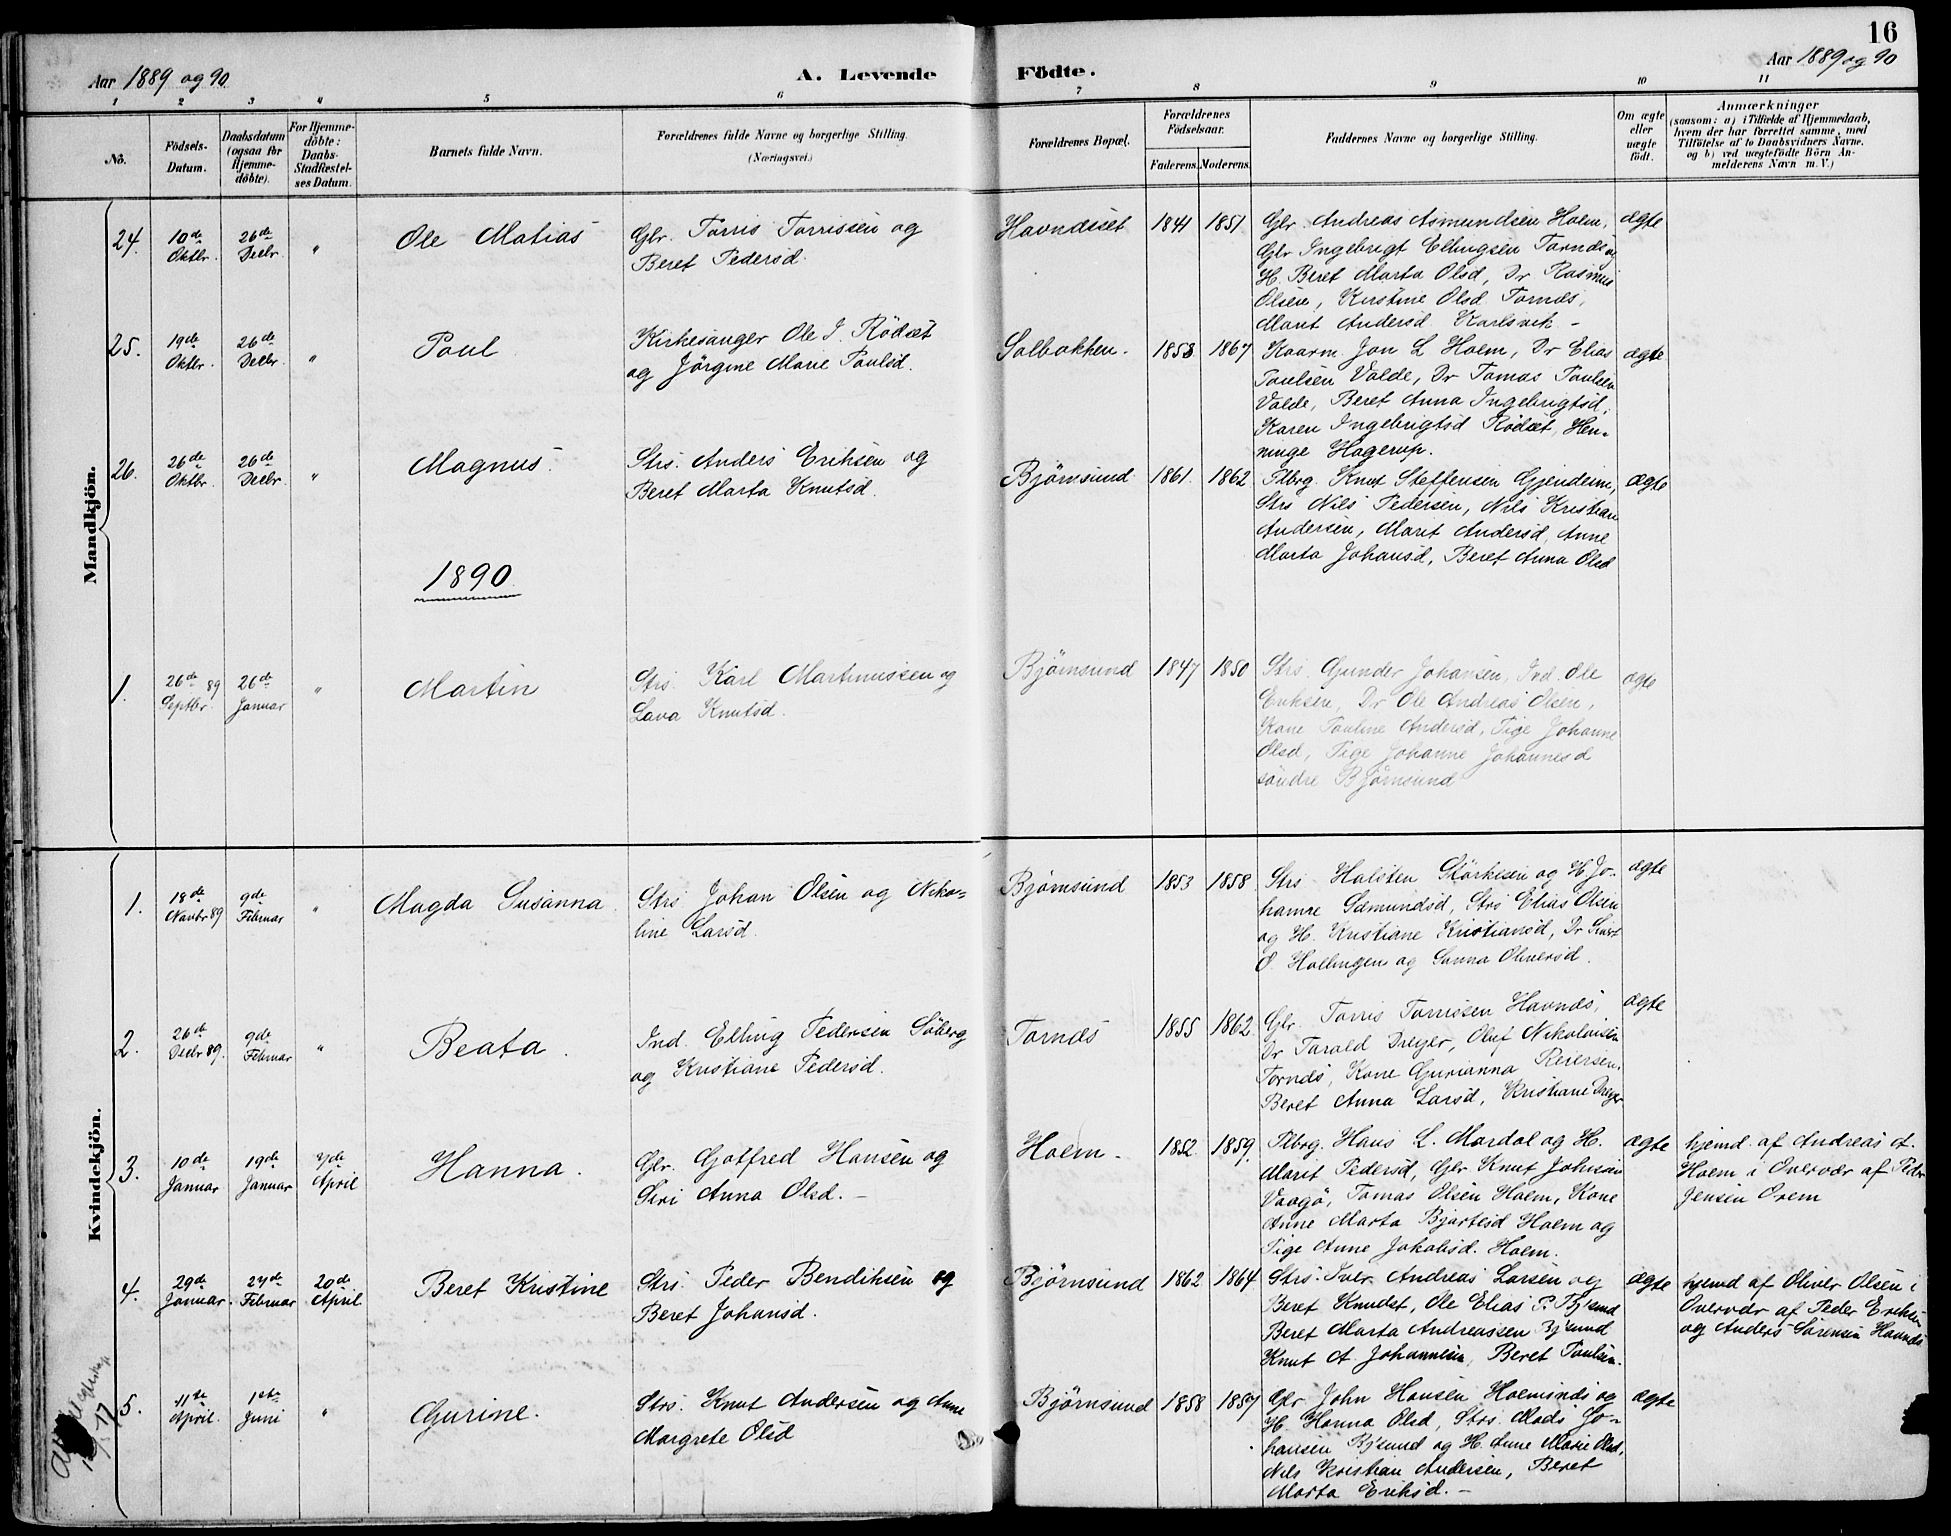 16
Aar 1889 og 90
A. Levende
Födte.
Aar 1889 og 90
1 2 3 4 5 6 7 8 9 10 11
No.
Födsels-
Datum.
Daabsdatum
(ogsaa for
Hjemme-
döbte).
For Hjemme-
döbte:
Daabs-
Stadfæstel-
ses Datum.
Barnets fulde Navn.
Forældrenes fulde Navne og borgerlige Stilling.
(Næringsvei.)
Forældrenes Bopæl.
Forældrenes
Födselsaar.
Faderens. Moderens.
Faddernes Navne og borgerlige Stilling.
Om ægte
eller
uægte
født.
Anmærkninger
(saasom: a) i Tilfælde af Hjemmedaab,
hvem der har forrettet samme, med
Tilföielse af to Daabsvidners Navne,
og b) ved uægtefödte Börn An-
melderens Navn m. V.)
Mandkjön.
24.
10de
Oktbr.
26de
Decbr.
"
Ole Matias
Gbr. Torris Torrissen og
Beret Pedersd.
Havndsset
1841
1851
Gbr. Andreas Asmundsen Holm,
Gbr Ingebrigt Ellingsen Tornds og
H. Beret Marta Olsd, Dr Rasmus
Olsen, Kirstine Olsd Tornds,
Marit Andersd Karlsvik –
ægte
25.
19de
Oktbr.
26de
Decbr.
"
Paul
Kirkesanger Ole J. Rödset
og Jörgine Marie Paulsd.
Solbakken.
1853
1867
Kaarm. Jon L Holm, Dr Elias
Paulsen Valde, Dr Tomas Paulsen
Valde, Beret Anna Ingebrigtsd,
Karen Ingebrigtsd Rödset, Hen-
ninge Hagerup.
ægte
26.
26de
Oktbr.
26de
Decbr.
"
Magnus.
Strs. Anders Eriksen og
Beret Marta Knutsd.
Björnsund
1861.
1862
Plbrg. Knut Steffensen Gjendeim,
Strs Nils Pedersen, Nils Kristian
Andersen, Marit Andersd, Anne
Marta Johansd, Beret Anna Olsd
ægte
1890
1.
26de
Septbr. 89
26de
Januar
"
Martin
Strs. Karl Martinussen og
Lava Knutsd.
Bjørnsund
1847
1850
Strs. Gunder Johansen, Ind. Ole
Eriksen, Dr Ole Andreas Olsen,
Kone Pauline Andersd, Pige Johanne
Olsd, Pige Johanne Johannesd
söndre Björnsund
ægte
Kvindekjön.
1.
18de
Novbr 89
9de
Februar
"
Magda Susanna
Strs. Johan Olsen og Niko-
line Larsd.
Bjørnsund
1853
1858
Strs. Halsten Störkesen og H. Jo-
hanne Sæmundsd, Strs Elias Olsen
og H. Kristiane Kristiansd, Dr Sivert
O. Hollingen og Sanna Oliversd.
ægte
2.
26de
Decbr 89.
9de
Februar
"
Beata.
Ind. Elling Pedersen Söberg
og Kristiane Pedersd.
Tornds
1855
1862
Gbr. Torris Torrissen Havnds,
Dr Tarald Dreyer, Oluf Nikolaisen
Tornds, Kone Gurianna Reiersen,
Beret Anna Larsd, Kristiane Dreyer
ægte
3.
10de
Januar
19de
Januar
7de
April
Hanna.
Gbr. Gotfred Hansen og
Siri Anna Olsd. –
Holm.
1852
1859.
Plbrg. Hans L. Mardal og H.
Marit Pedersd, Gbr Knut Johnsen
Vaagö, Tomas Olsen Holm, Kone
Anne Marta Bjartesd Holm og
Pige Anne Jakobsd. Holm.
ægte
hjemd af Andreas A.
Holm i Overvær af Peder
Jensen Orem
4.
29de
Januar.
24de
Februar
20de
April
Beret Kristine
Strs. Peder Bendiksen og
Beret Johansd.
Bjørnsund
1862
1864
Strs. Iver Andreas Larsen og
Beret Knudst, Ole Elias P. Bj'sund
Beret Marta Andreassen Bj'sund
Knut A. Johannesen, Beret Paulsen.
ægte
hjemd af Oliver Olsen i
Overvær af Peder Eriksen
og Anders Sörensen Havnds
5.
11te
April.
1ste
Juni
"
Gurine.
Strs. Knut Andersen og Anne
Margrete Olsd
Bjørnsund
1858
1857
Gbr John Hansen Holmsnds og
H. Hanna Olsd, Strs. Mads Jo-
hansen Bj'sund og H. Anne Marie Olsd,
Nils Kristian Andersen, Beret
Marta Eriksd. –
ægte